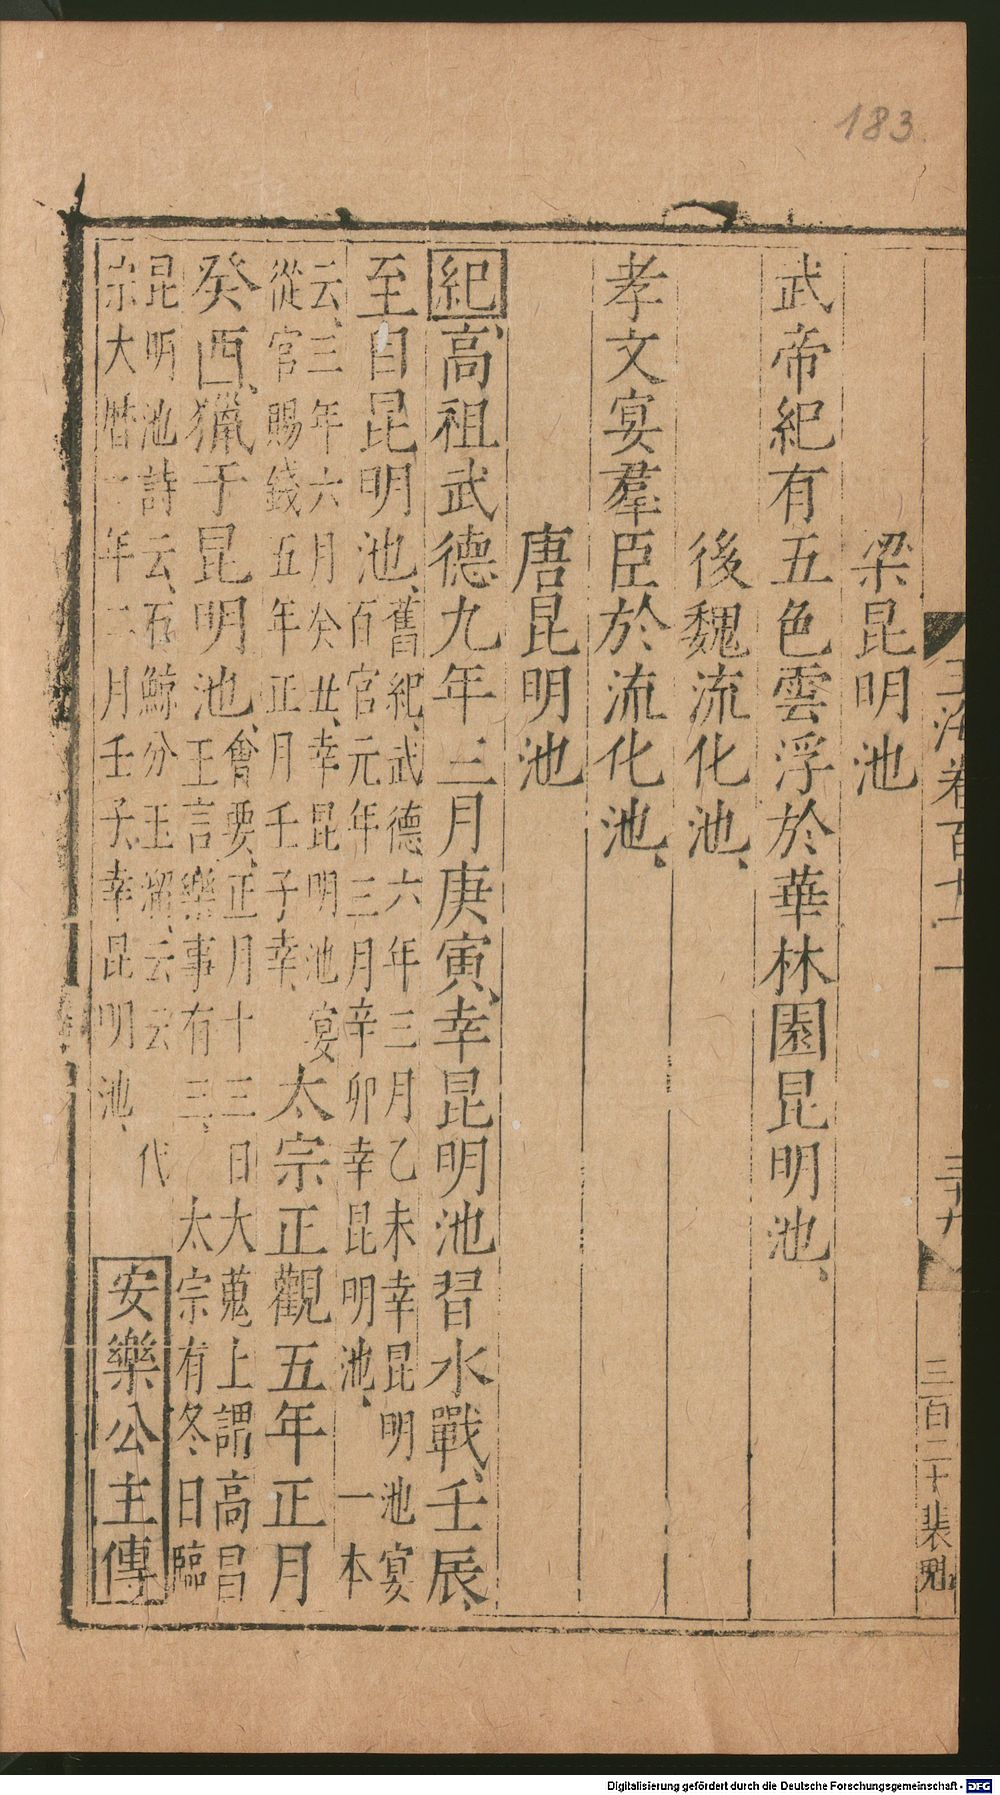 183
玉海卷百七十一 三十九 三百二十 裴魁
梁昆明池
武帝紀有五色雲浮於華林園昆明池、
後魏流化池、
孝文宴羣臣於流化池、
唐昆明池
紀高祖武德九年三月庚寅、幸昆明池習水戰、壬辰、
至自昆明池、舊紀、武德六年三月乙未幸昆明池宴
百官元年三月辛卯幸昆明池、一本
云、三年六月癸丑、幸昆明池宴
從官賜錢五年正月壬子幸、太宗正觀五年正月
癸酉、獵于昆明池、會要、正月十三日大蒐上謂高昌
王言樂事有三、太宗有冬日臨
昆明池詩云、石鯨分玉溜、云云 代
宗大曆二年二月壬子、幸昆明池、安樂公主傳
Digitalisierung gefördert durch die Deutsche Forschungsgemeinschaft - DFG